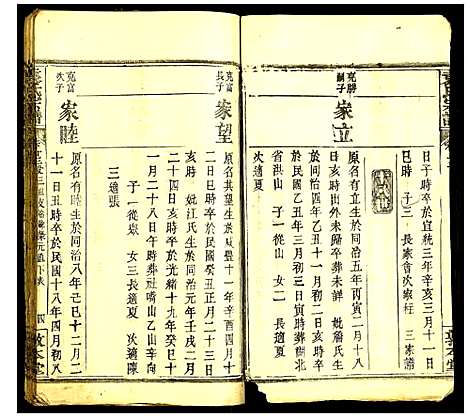 日子時卒於宣統三年辛亥三月十一日
巳時 子三 長家會次家柱 三家
家立
原名有立生於同治五年丙寅十一月十八
日亥時出外未歸卒葬未詳 妣詹氏生
於同治四年乙丑十一月初二日亥時卒
於民國十年三月初三日亥時葬湖北
省洪山 子一從山 女二 長適
次適夏
充富長子
家望
原名其望生於咸豐十一年辛酉四月十
八日亥時卒於民國二年癸丑正月二十三日
亥時 妣江氏生於同治元年壬戌二月
二十四日亥時卒於光緒十九年癸巳十
一月二十八日午時葬社嘴山乙山辛向
子一從 女三長適夏 次適陳
三適張
充富次子
家睦
原名有睦生於同治八年己巳十二月二
十一日丑時卒於民國十八年四月初八
四
敦本堂